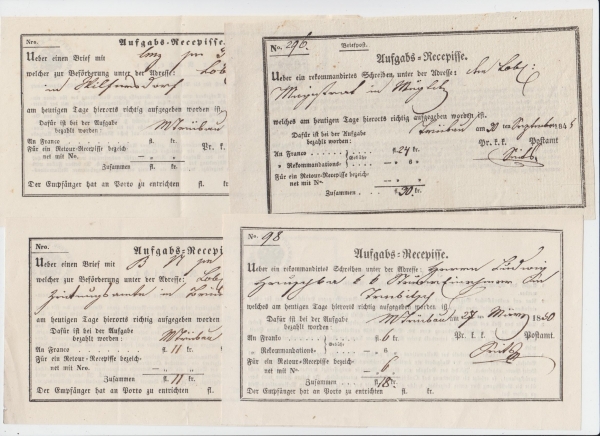 Nro.
Aufgabs-Recepisse.
Ueber einen Brief mit
welcher zur Beförderung unter der Adresse: Löb
in
am heutigen Tage hierorts richtig aufgegeben worden ist,
Dafür ist bei der Aufgabe
bezahlt worden: MTrübau
An Franco . . . . . fl. kr. Pr. k.
Für ein Retour-Recepisse bezeich-
net mit No. — „ — „
Zusammen fl. kr.
Der Empfänger hat an Porto zu entrichten fl. k
No. 296. Briefpost.
Aufgabs-Recepisse.
Ueber ein rekommandirtes Schreiben, unter der Adresse: Löbl:
Magistrat in Müglitz
welches am heutigen Tage hierorts richtig aufgegeben worden ist.
Dafür ist bei der Aufgabe
bezahlt worden: Trübau am 30 ten September 184
An Franco . . . . Gebühr fl. 24 kr. Pr. k. k. Postamt
„ Rekommandations- — „ 6 „
Für ein Retour-Recepisse bezeich-
net mit No. — „ — „
Zusammen fl. 30 kr.
Nro.
Aufgabs-Recepi
Ueber einen Brief mit
welcher zur Beförderung unter der Adresse: Löb
Zeitungsamte in
am heutigen Tage hierorts richtig aufgegeben worden
Dafür ist bei der Aufgabe
bezahlt worden: MTrübau
An Franco . . . . . fl. 11 kr.
Für ein Retour-Recepisse bezeich-
net mit Nro. — „ „
Zusammen fl. 11 kr.
Der Empfänger hat an Porto zu entrichten fl.
No. 98
Aufgabs-Recepisse.
Ueber ein rekommandirtes Schreiben unter der Adresse: Herrn Ludwig
k. k. Steuer Einnehmer in
Trübitzel
welches am heutigen Tage hierorts richtig aufgegeben worden ist.
Dafür ist bei der Aufgabe
bezahlt worden: MTrübau am 27 ten März 1850
An Franco . . . . Gebühr fl. 6 kr. Pr. k. k. Postamt.
„ Rekommandations- — „ 6 „
Für ein Retour-Recepisse bezeich-
net mit No. — „ 6 „
Zusammen . . . . fl. 18 kr.
Der Empfänger hat an Porto zu entrichten fl. kr.